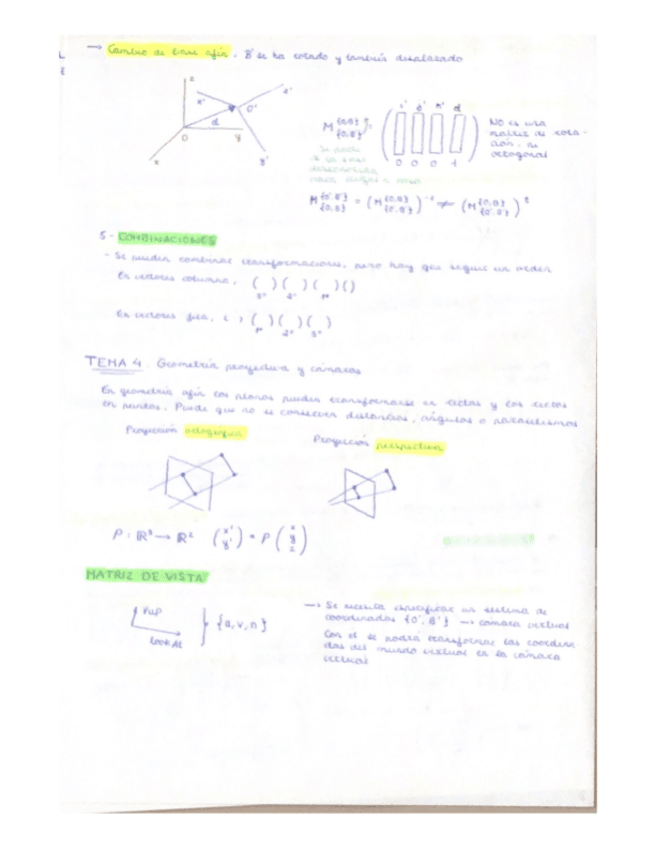 → Cambio de base afín. B' se ha rotado y también desplazado
z
x'
z'
O'
d
O
y
x
y'
i' j' k' d
M {O,B} {O',B'} = ( )
0 0 0 1
No es una
matriz de rota-
ción, ni
ortogonal
M {O',B'} {O,B} = (M {O,B} {O',B'})⁻¹ ≠ (M {O,B} {O',B'})ᵗ
5- COMBINACIONES
- Se pueden combinar transformaciones, pero hay que seguir un orden
En vectores columna, ( ) ( ) ( ) ( )
3º 2º 1º
En vectores fila, ( ) ( ) ( ) ( )
1º 2º 3º
TEMA 4. Geometría proyectiva y cámaras
En geometría afín los planos pueden transformarse en rectas y las rectas
en puntos. Puede que no se conserven distancias, ángulos o paralelismos
Proyección ortográfica
Proyección perspectiva
P: ℝ³ → ℝ² (x' y') = P (x y z)
MATRIZ DE VISTA
VUP
LookAt
{u, v, n}
→ Se necesita especificar un sistema de
coordenadas {O', B'} → cámara virtual
Con él se podrá transformar las coordena-
das del mundo virtual en la cámara
virtual